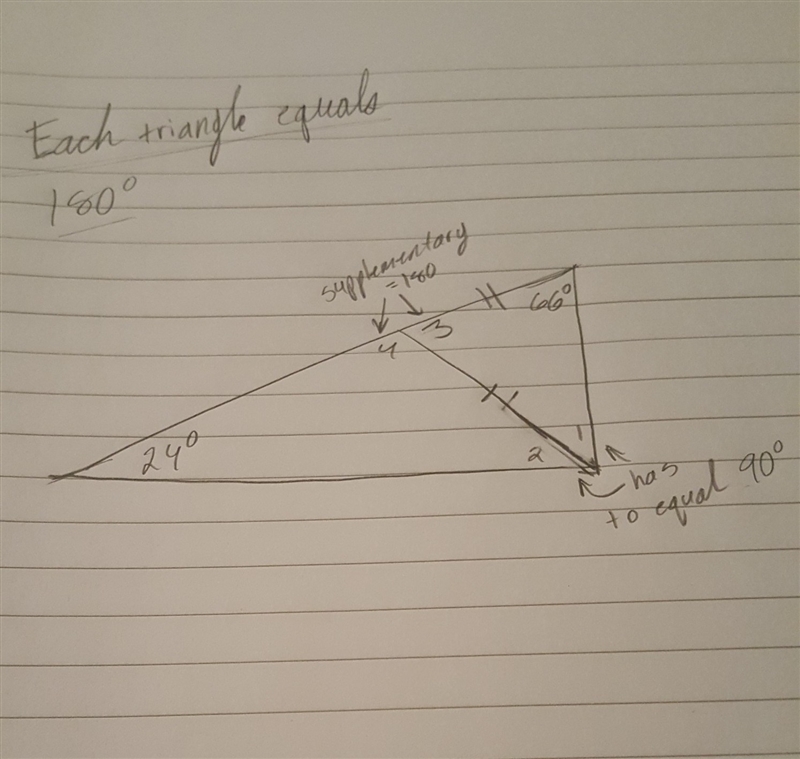 Each triangle equals
180°
supplementary
=180
4
3
66°
24°
2
1
has
to equal 90°